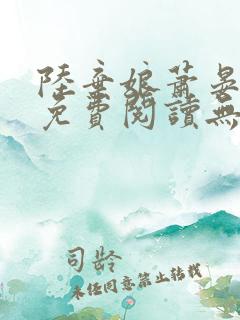 陸棄娘蕭晏
免費閱讀無
司龄
未经同意禁止转载